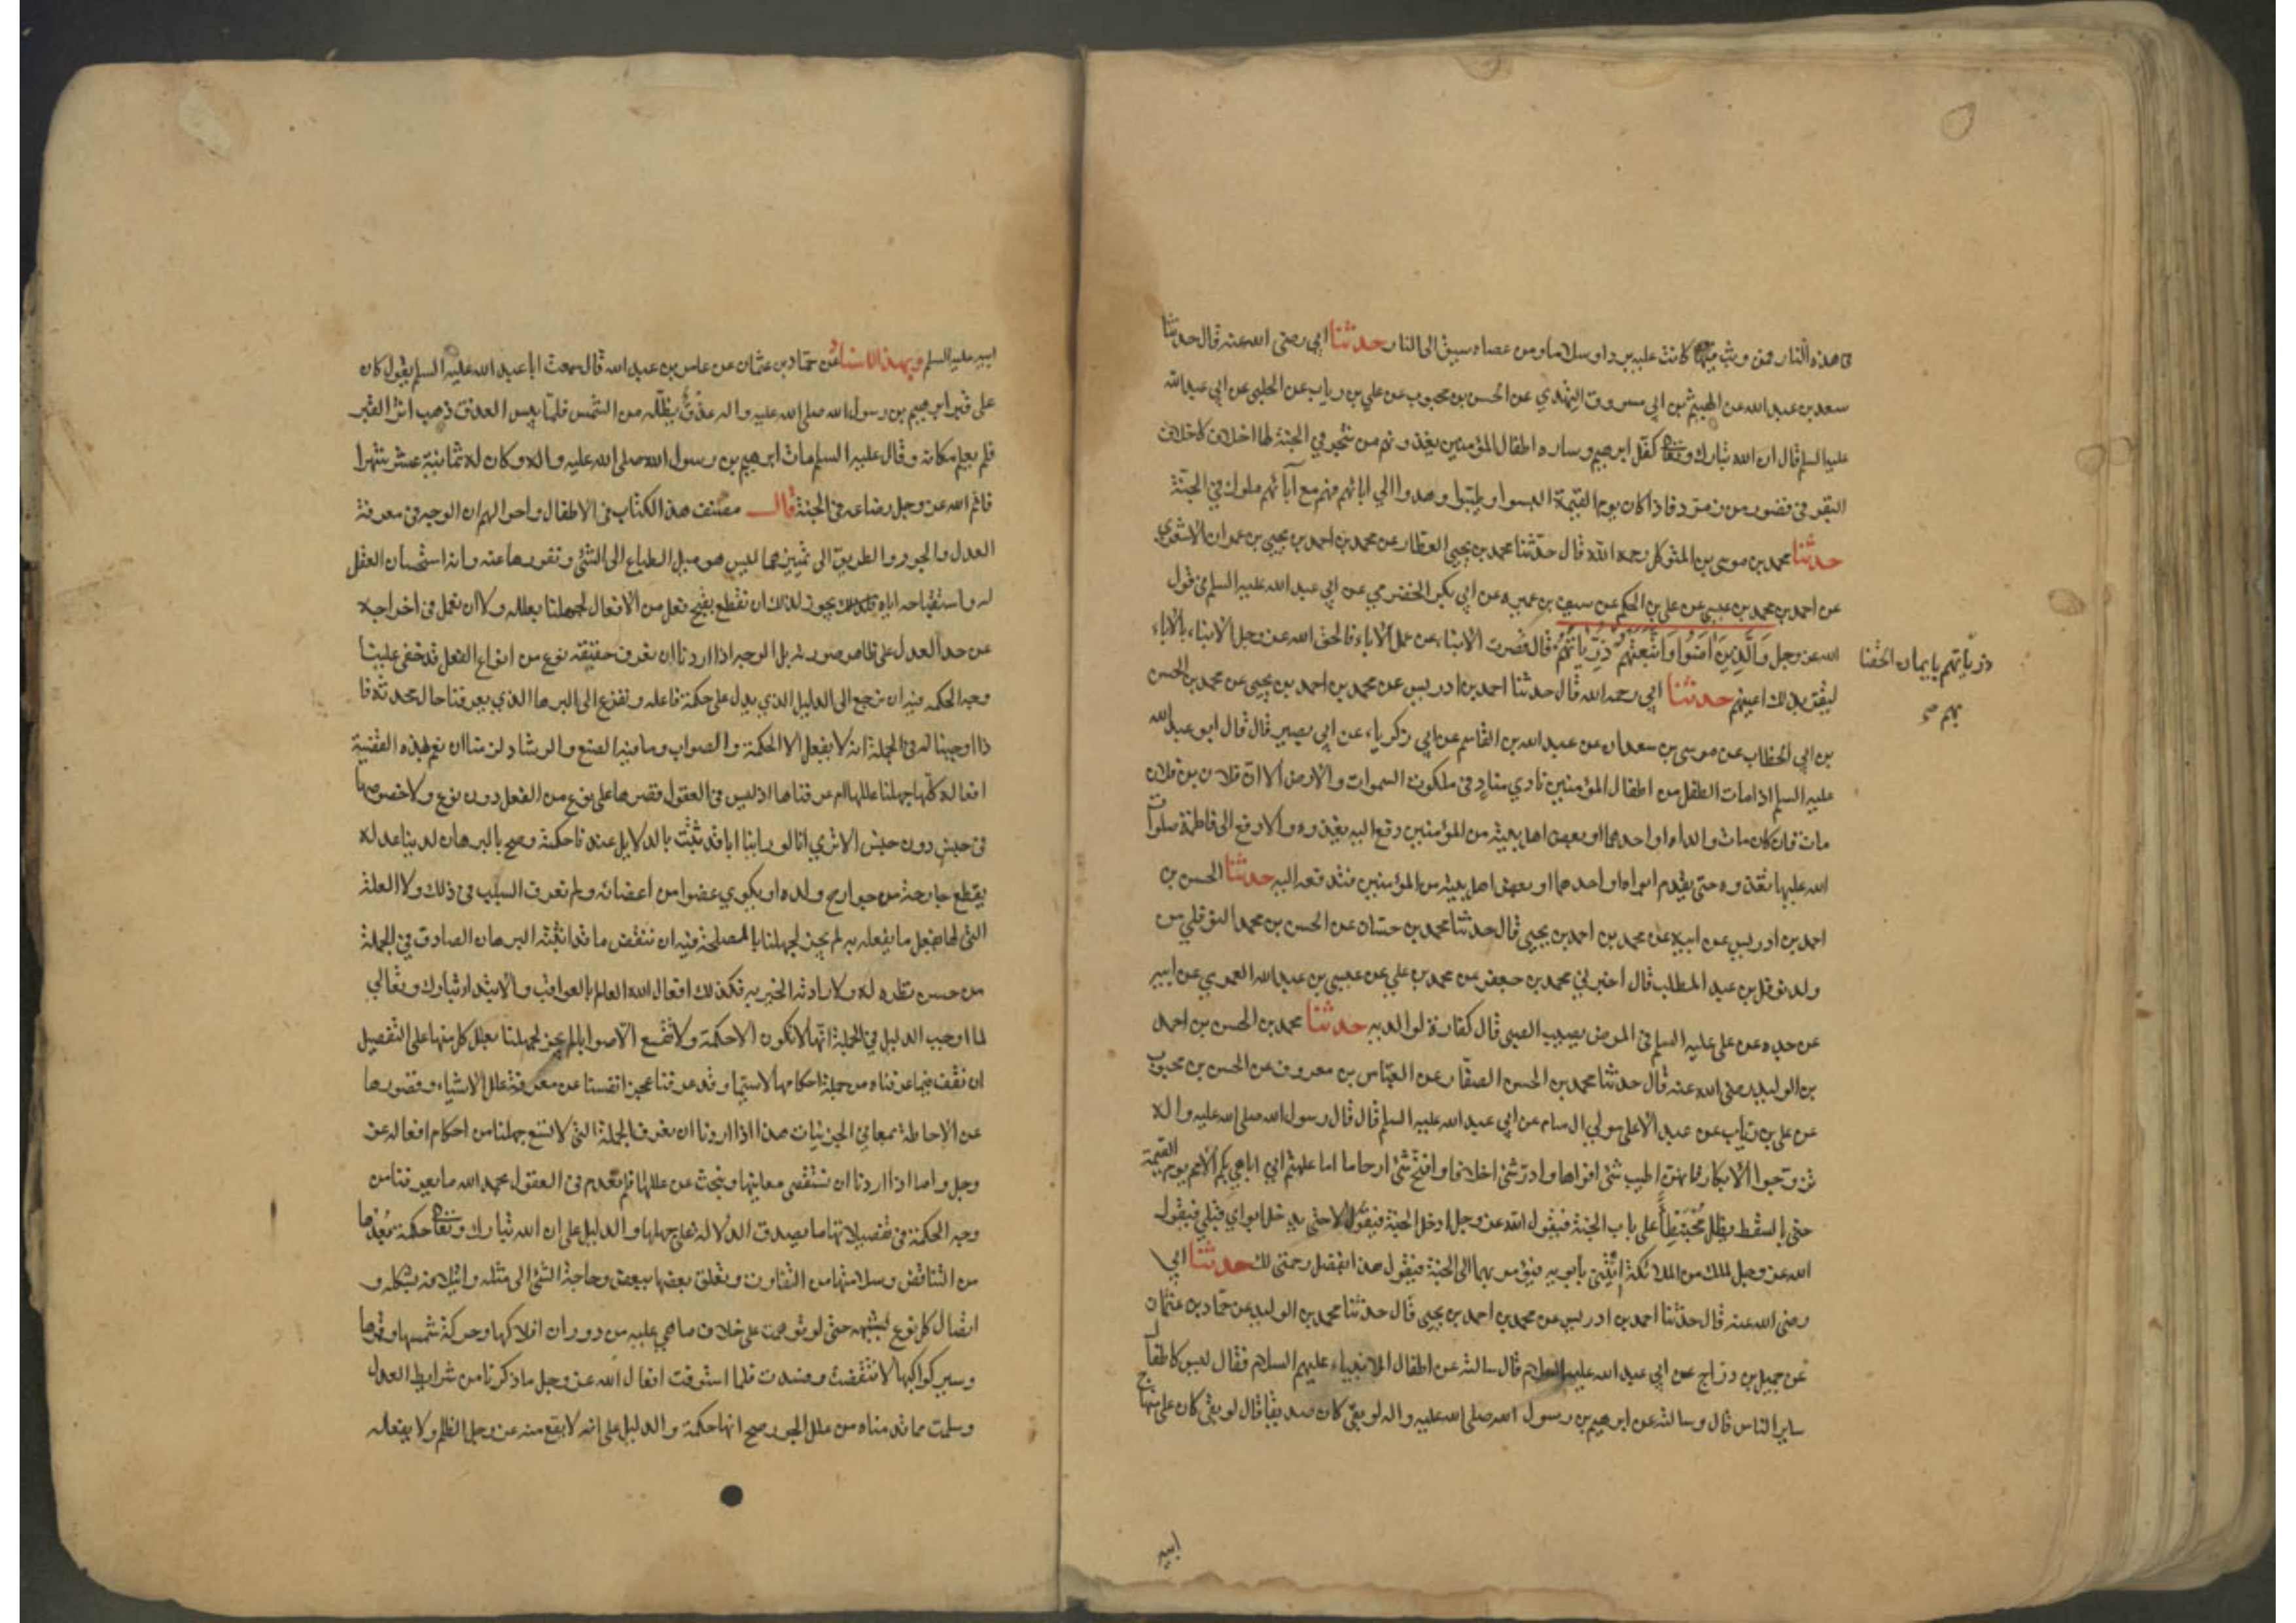 هذه النار فمن وثب فيها كانت عليه بردا وسلاما ومن عصاه سيق الى النار حدثنا ابي رضي الله عنه قال حدثنا
سعد بن عبد الله عن الهيثم بن ابي مسروق النهدي عن الحسن بن محبوب عن علي بن رياب عن الحلبي عن ابي عبد الله
عليه السلم قال ان الله تبارك وتعا كفل ابرهيم وساره اطفال المؤمنين يغذونهم من شجر في الجنة لها اخلاف كاخلاف
البقر في قصور من در فاذا كان يوم القيمة البسوا وطيبوا واهدوا الى ابائهم فهم مع آبائهم ملوك في الجنة
حدثنا محمد بن موسى بن المتوكل رحمه الله قال حدثنا محمد بن يحيى العطار عن محمد بن احمد بن يحيى بن عمران الاشعري
عن احمد بن محمد بن عيسى عن علي بن الحكم عن سيف بن عميره عن ابي بكر الحضرمي عن ابي عبد الله عليه السلم في قول
الله عز وجل وَالَّذِينَ اٰمَنُوا وَاتَّبَعَتْهُمْ ذُرِّيَّاتُهُمْ قال قصرت الابناء عن عمل الاباء فالحق الله عز وجل الابناء بالاباء
ذرياتهم بايمان الحقنا
بهم صح
ليقر بذلك اعينهم حدثنا ابي رحمه الله قال حدثنا احمد بن ادريس عن محمد بن احمد بن يحيى عن محمد بن الحسن
بن ابي الخطاب عن موسى بن سعدان عن عبد الله بن القاسم عن ابي زكرياء عن ابي بصير قال قال ابو عبد الله
عليه السلم اذا مات الطفل من اطفال المؤمنين نادي مناد في ملكوت السموات والارض الا ان فلان بن فلان
مات فان كان مات والداه او احدهما او بعض اهل بيته من المؤمنين دفع اليه يغذوه والا دفع الى فاطمة صلوات
الله عليها تغذوه حتى يقدم ابواه او احدهما او بعض اهل بيته من المؤمنين فتدفعه اليه حدثنا الحسن بن
احمد بن ادريس عن ابيه عن محمد بن احمد بن يحيى قال حدثنا محمد بن حسان عن الحسن بن محمد النوفلي من
ولد نوفل بن عبد المطلب قال اخبرني محمد بن جعفر عن محمد بن علي عن عيسى بن عبد الله العمري عن ابيه
عن جده عن علي عليه السلم في المرض يصيب الصبى قال كفارة لوالديه حدثنا محمد بن الحسن بن احمد
بن الوليد رضي الله عنه قال حدثنا محمد بن الحسن الصفار عن العباس بن معروف عن الحسن بن محبوب
عن علي بن رياب عن عبد الاعلى مولى ال سام عن ابي عبد الله عليه السلم قال قال رسول الله صلى الله عليه واله
تزوجوا الابكار فانهن اطيب شئ افواها وادر شئ اخلافا وافتح شئ ارحاما اما علمتم اني اباهي بكم الامم يوم القيمة
حتى بالسقط يظل مُحْبَنْطِأً على باب الجنة فيقول الله عز وجل ادخل الجنة فيقول لا حتى يدخل ابواي قبلي فيقول
الله عز وجل لملك من الملائكة ائتني بأبويه فيؤمر بهما الى الجنة فيقول هذا بفضل رحمتي لك حدثنا ابي
رضي الله عنه قال حدثنا احمد بن ادريس عن محمد بن احمد بن يحيى قال حدثنا محمد بن الوليد عن حماد بن عثمان
عن جميل بن دراج عن ابي عبد الله عليه السلام قال سالته عن اطفال الانبياء عليهم السلام فقال ليس كاطفال
ساير الناس قال وسالته عن ابرهيم بن رسول الله صلى الله عليه واله لو بقى كان صديقا قال لو بقى كان على منهاج
ابيه
ابيه عليه السلم وبهذا الاسناد عن حماد بن عثمان عن عامر بن عبد الله قال سمعت ابا عبد الله عليه السلم يقول كان
على قبر ابرهيم بن رسول الله صلى الله عليه واله عذق يظلله من الشمس فلما يبس العذق ذهب اثر القبر
فلم يعلم مكانه وقال عليه السلم مات ابرهيم بن رسول الله صلى الله عليه واله وكان له ثمانية عشر شهرا
فاتم الله عز وجل رضاعه في الجنة قال مصنف هذا الكتاب في الاطفال واحوالهم ان الوجه في معرفة
العدل والجور والطريق الى تمييزهما ليس هو ميل الطباع الى الشئ ونفورها عنه وانه استحسان العقل
له واستقباحه اياه فليس يجوز لذلك ان نقطع بقبح فعل من الافعال لجهلنا بعلله ولا ان نعمل في اخراجه
عن حد العدل على ظاهر صورته بل الوجه اذا اردنا ان نعرف حقيقة نوع من انواع الفعل قد خفى علينا
وجه الحكمه فيه ان نرجع الى الدليل الذي يدل على حكمة فاعله ونفزع الى البرهان الذي يعرفنا حال محدثه فا
ذا اوجبنا له في الجملة انه لا يفعل الا الحكمة والصواب وما فيه الصنع والرشاد لزمنا ان نعم بهذه القضية
افعاله كلها جهلنا عللها ام عرفناها اذ ليس في العقول قصرها على نوع من الفعل دون نوع ولا خصوصها
في جنس دون جنس الا تري انا لو راينا ابا قد ثبتت بالدلايل عندنا حكمته وصح بالبرهان لدينا عدله
يقطع جارحة من جوارح ولده او يكوي عضوا من اعضائه ولم نعرف السبب في ذلك ولا العلة
التي لها يفعل ما يفعله به لم يجز لجهلنا بالمصلحة فيه ان ننقض ما قد اثبته البرهان الصادق في الجملة
من حسن نظره له ولارادته الخير به فكذلك افعال الله العالم بالعواقب والابتداء تبارك وتعالى
لما اوجب الدليل في الجملة انها لا تكون الا حكمة ولا تقع الا صوابا لم يجز لجهلنا بعلل كل منها على التفصيل
ان نقف فيما عرفناه من جملة احكامها لاسيما وقد عرفنا عجز انفسنا عن معرفة علل الاشياء وقصورها
عن الاحاطة بمعاني الجزئيات هذا اذا اردنا ان نعرف الجملة التي لا يسع جهلنا من احكام افعاله عز
وجل واما اذا اردنا ان نستقصي معانيها ونبحث عن عللها فلم نعدم في العقول بحمد الله ما يعرفنا من
وجه الحكمة في تفصيلاتها ما يصدق الدلالة على جملها والدليل على ان الله تبارك وتعا حكمة بُعدها
من التناقض وسلامتها من التفاوت وتعلق بعضها ببعض وحاجة الشئ الى مثله وائتلافه بشكله و
اتصال كل نوع بشبهه حتى لو توهمت على خلاف ما هي عليه من دوران افلاكها وحركة شمسها وقمرها
وسير كواكبها لانتقضت وفسدت فلما استوفت افعال الله عز وجل ما ذكرنا من شرايط العدل
وسلمت مما قدمناه من علل الجور صح انها حكمة والدليل على انه لا يقع منه عز وجل الظلم ولا يفعله